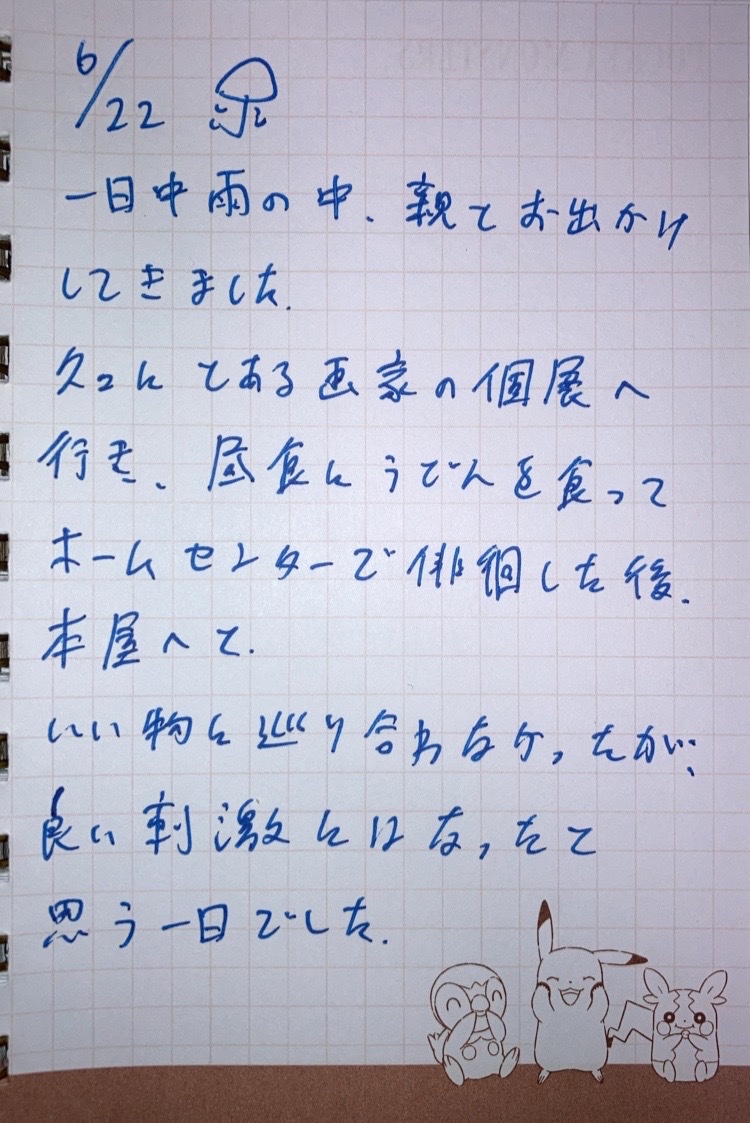 6/22
一日中雨の中、親とお出かけ
してきました。
久々にとある画家の個展へ
行き、昼食にうどんを食って
ホームセンターで俳徊した後、
本屋へと。
いい物に巡り合わなかったが、
良い刺激にはなったと
思う一日でした。